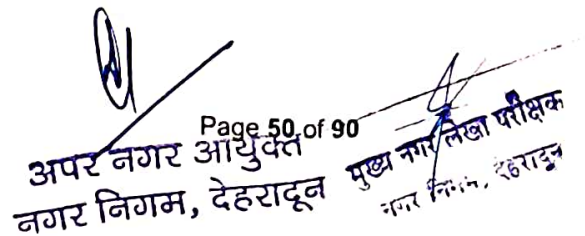 Page 50 of 90
अपर नगर आयुक्त
नगर निगम, देहरादून
मुख्य नगर लेखा परीक्षक
नगर निगम, देहरादून